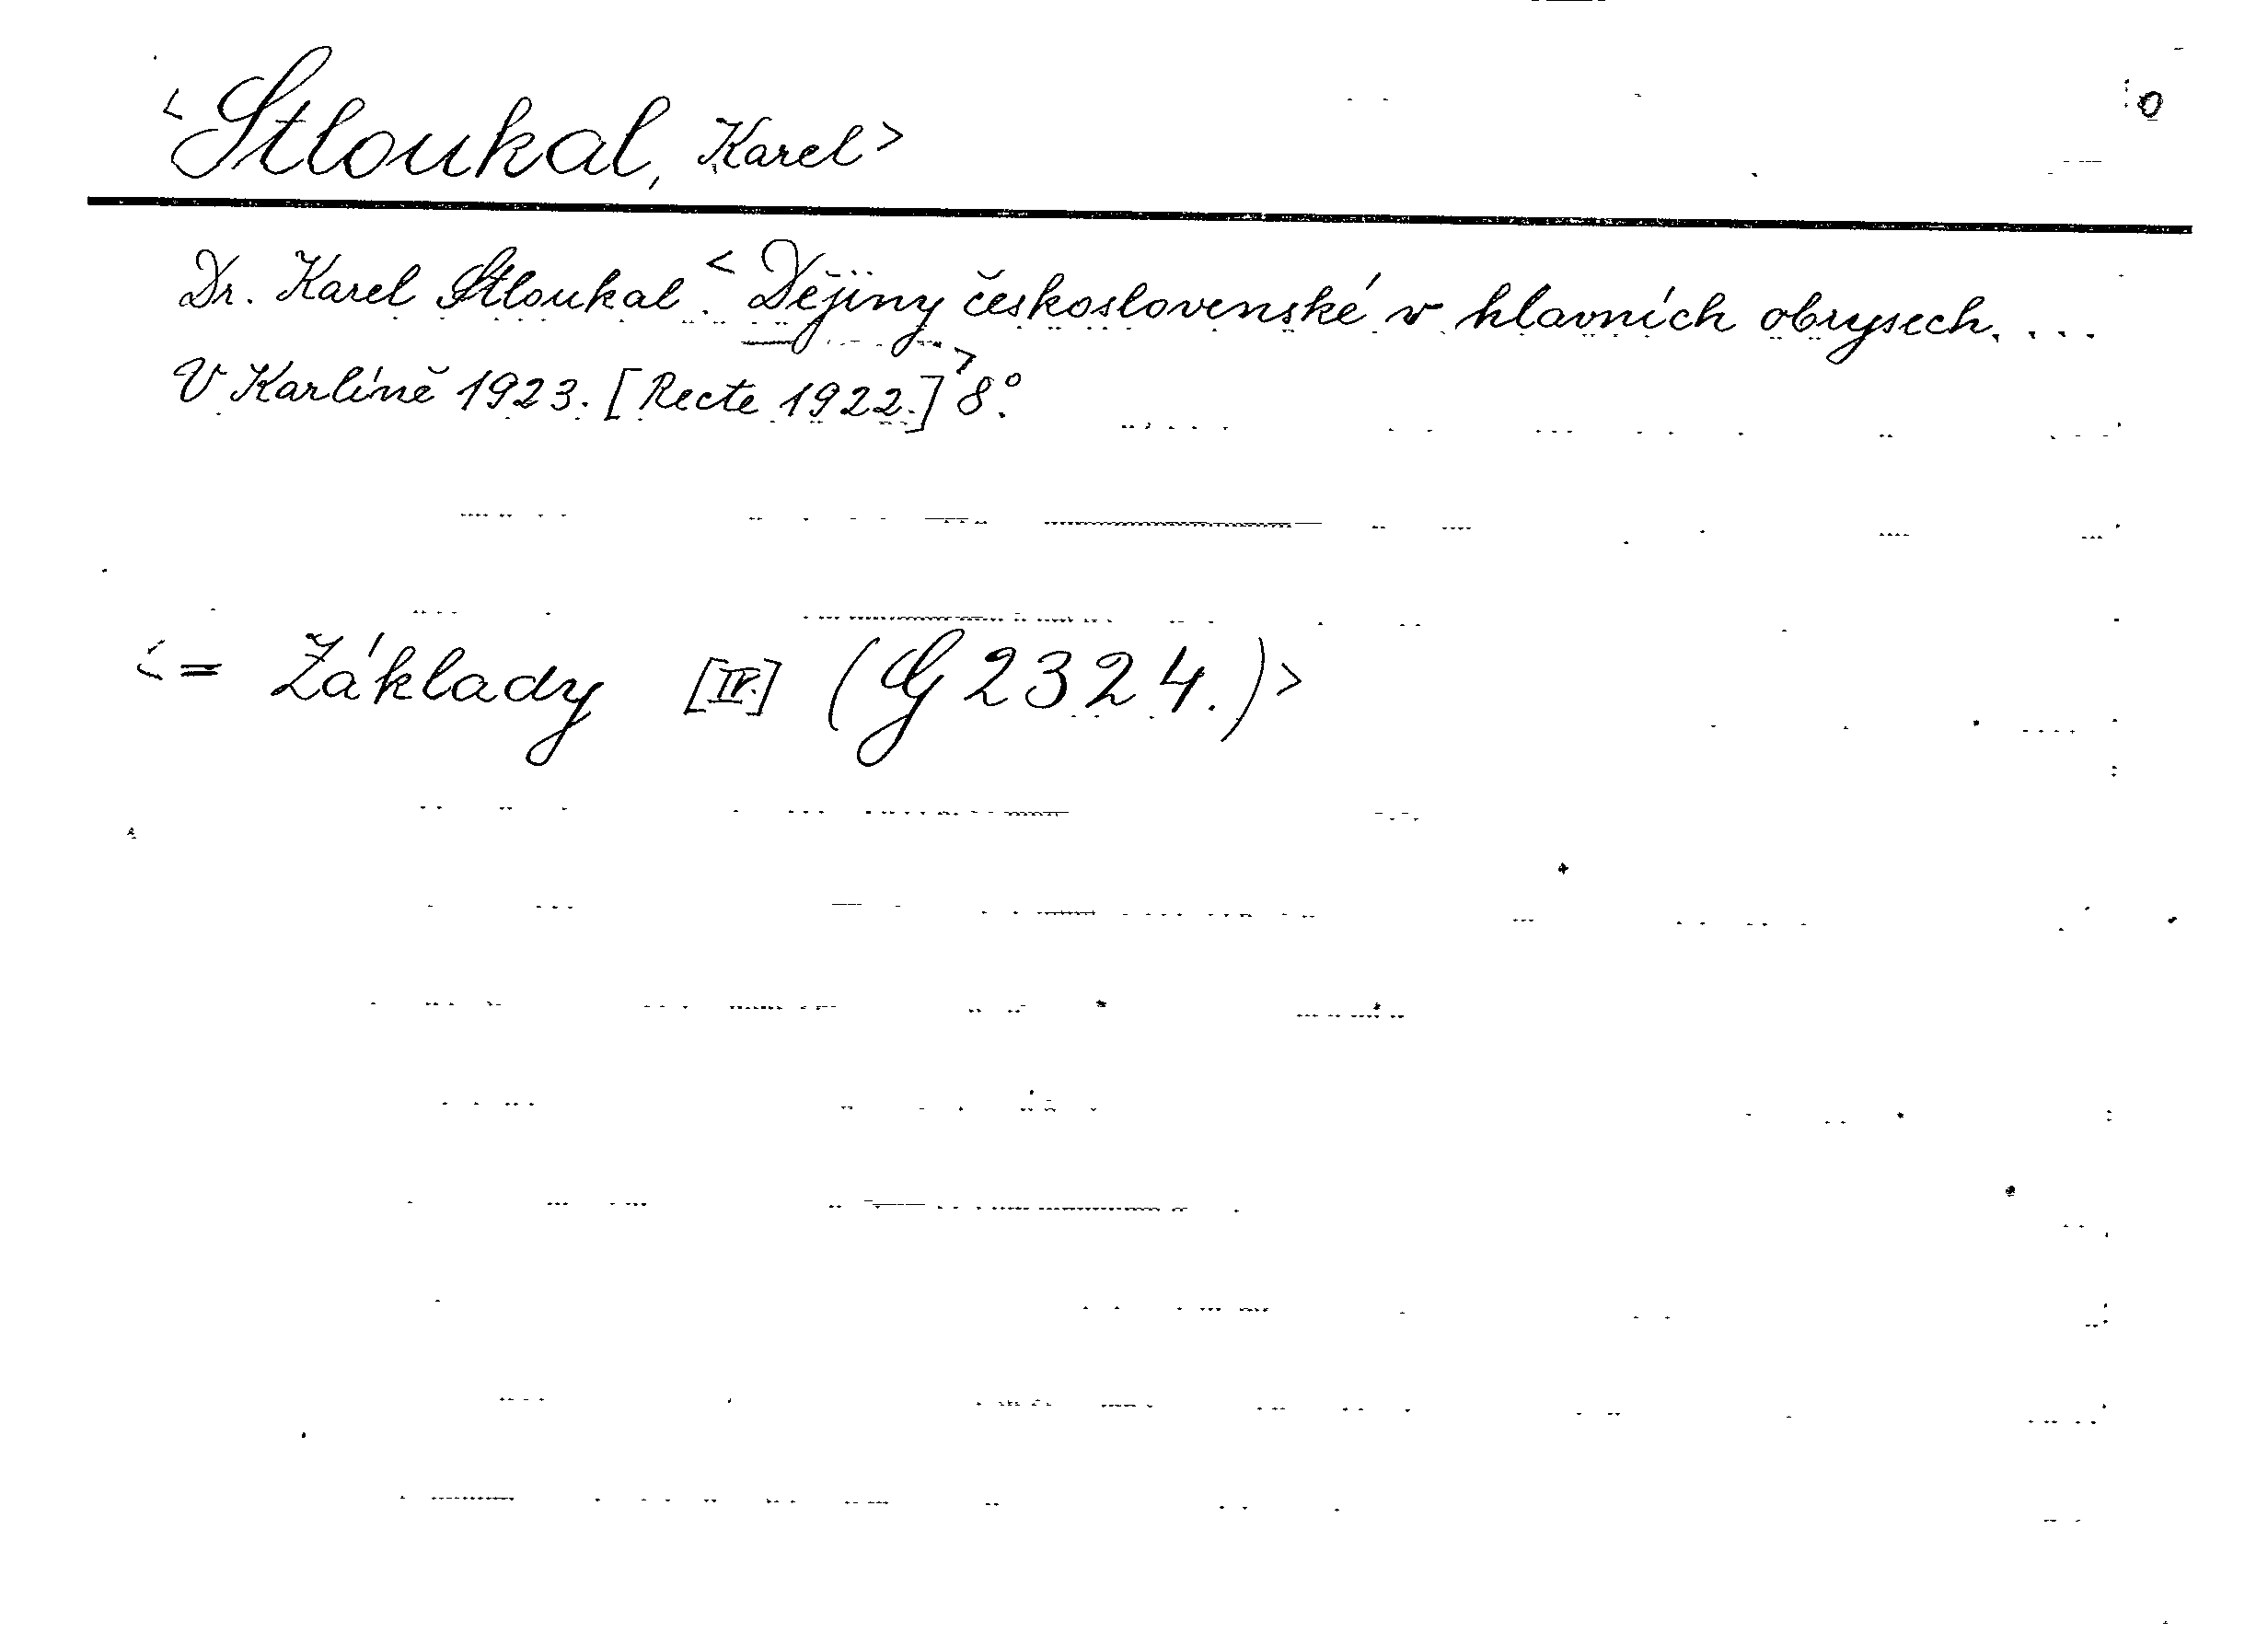 <Stloukal, Karel>
o
Dr. Karel Stloukal. <Dějiny československé v hlavních obrysech. ...
V Karlíně 1923. [Recte 1922.]> 8°.
<= Základy [IV.] (G 2324.)>